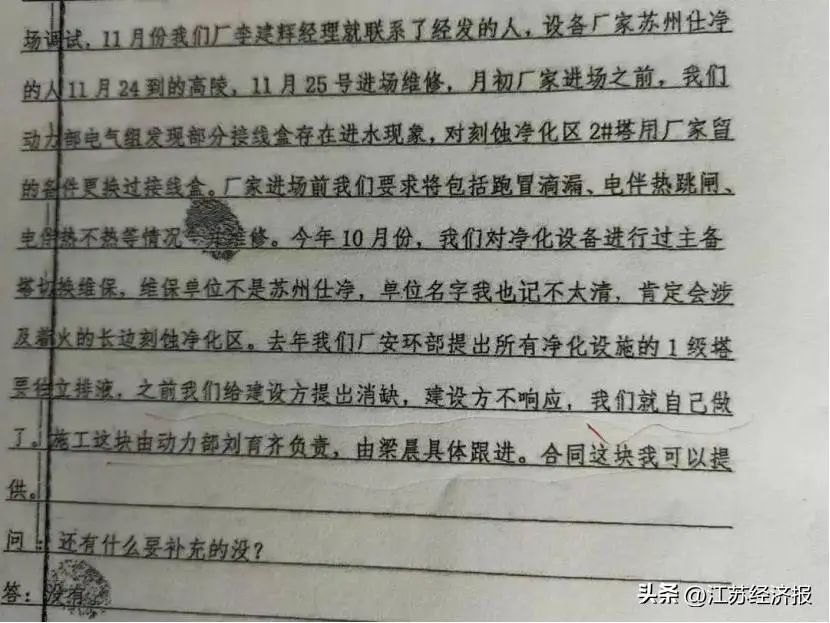 场调试，11月份我们厂李建辉经理就联系了经发的人，设备厂家苏州仕净
的人11月24到的高陵，11月25号进场维修，月初厂家进场之前，我们
动力部电气组发现部分接线盒存在进水现象，对刻蚀净化区2#塔用厂家留
的备件更换过接线盒。厂家进场前我们要求将包括跑冒滴漏、电伴热跳闸、
电伴热不热等情况一并维修。今年10月份，我们对净化设备进行过主备
塔切换维保，维保单位不是苏州仕净，单位名字我也记不太清，肯定会涉
及着火的长边刻蚀净化区。去年我们厂安环部提出所有净化设施的1级塔
要独立排液，之前我们给建设方提出消缺，建设方不响应，我们就自己做
了。施工这块由动力部刘育齐负责，由梁晨具体跟进。合同这块我可以提
供。
问：还有什么要补充的没？
答：没有。
头条 @江苏经济报